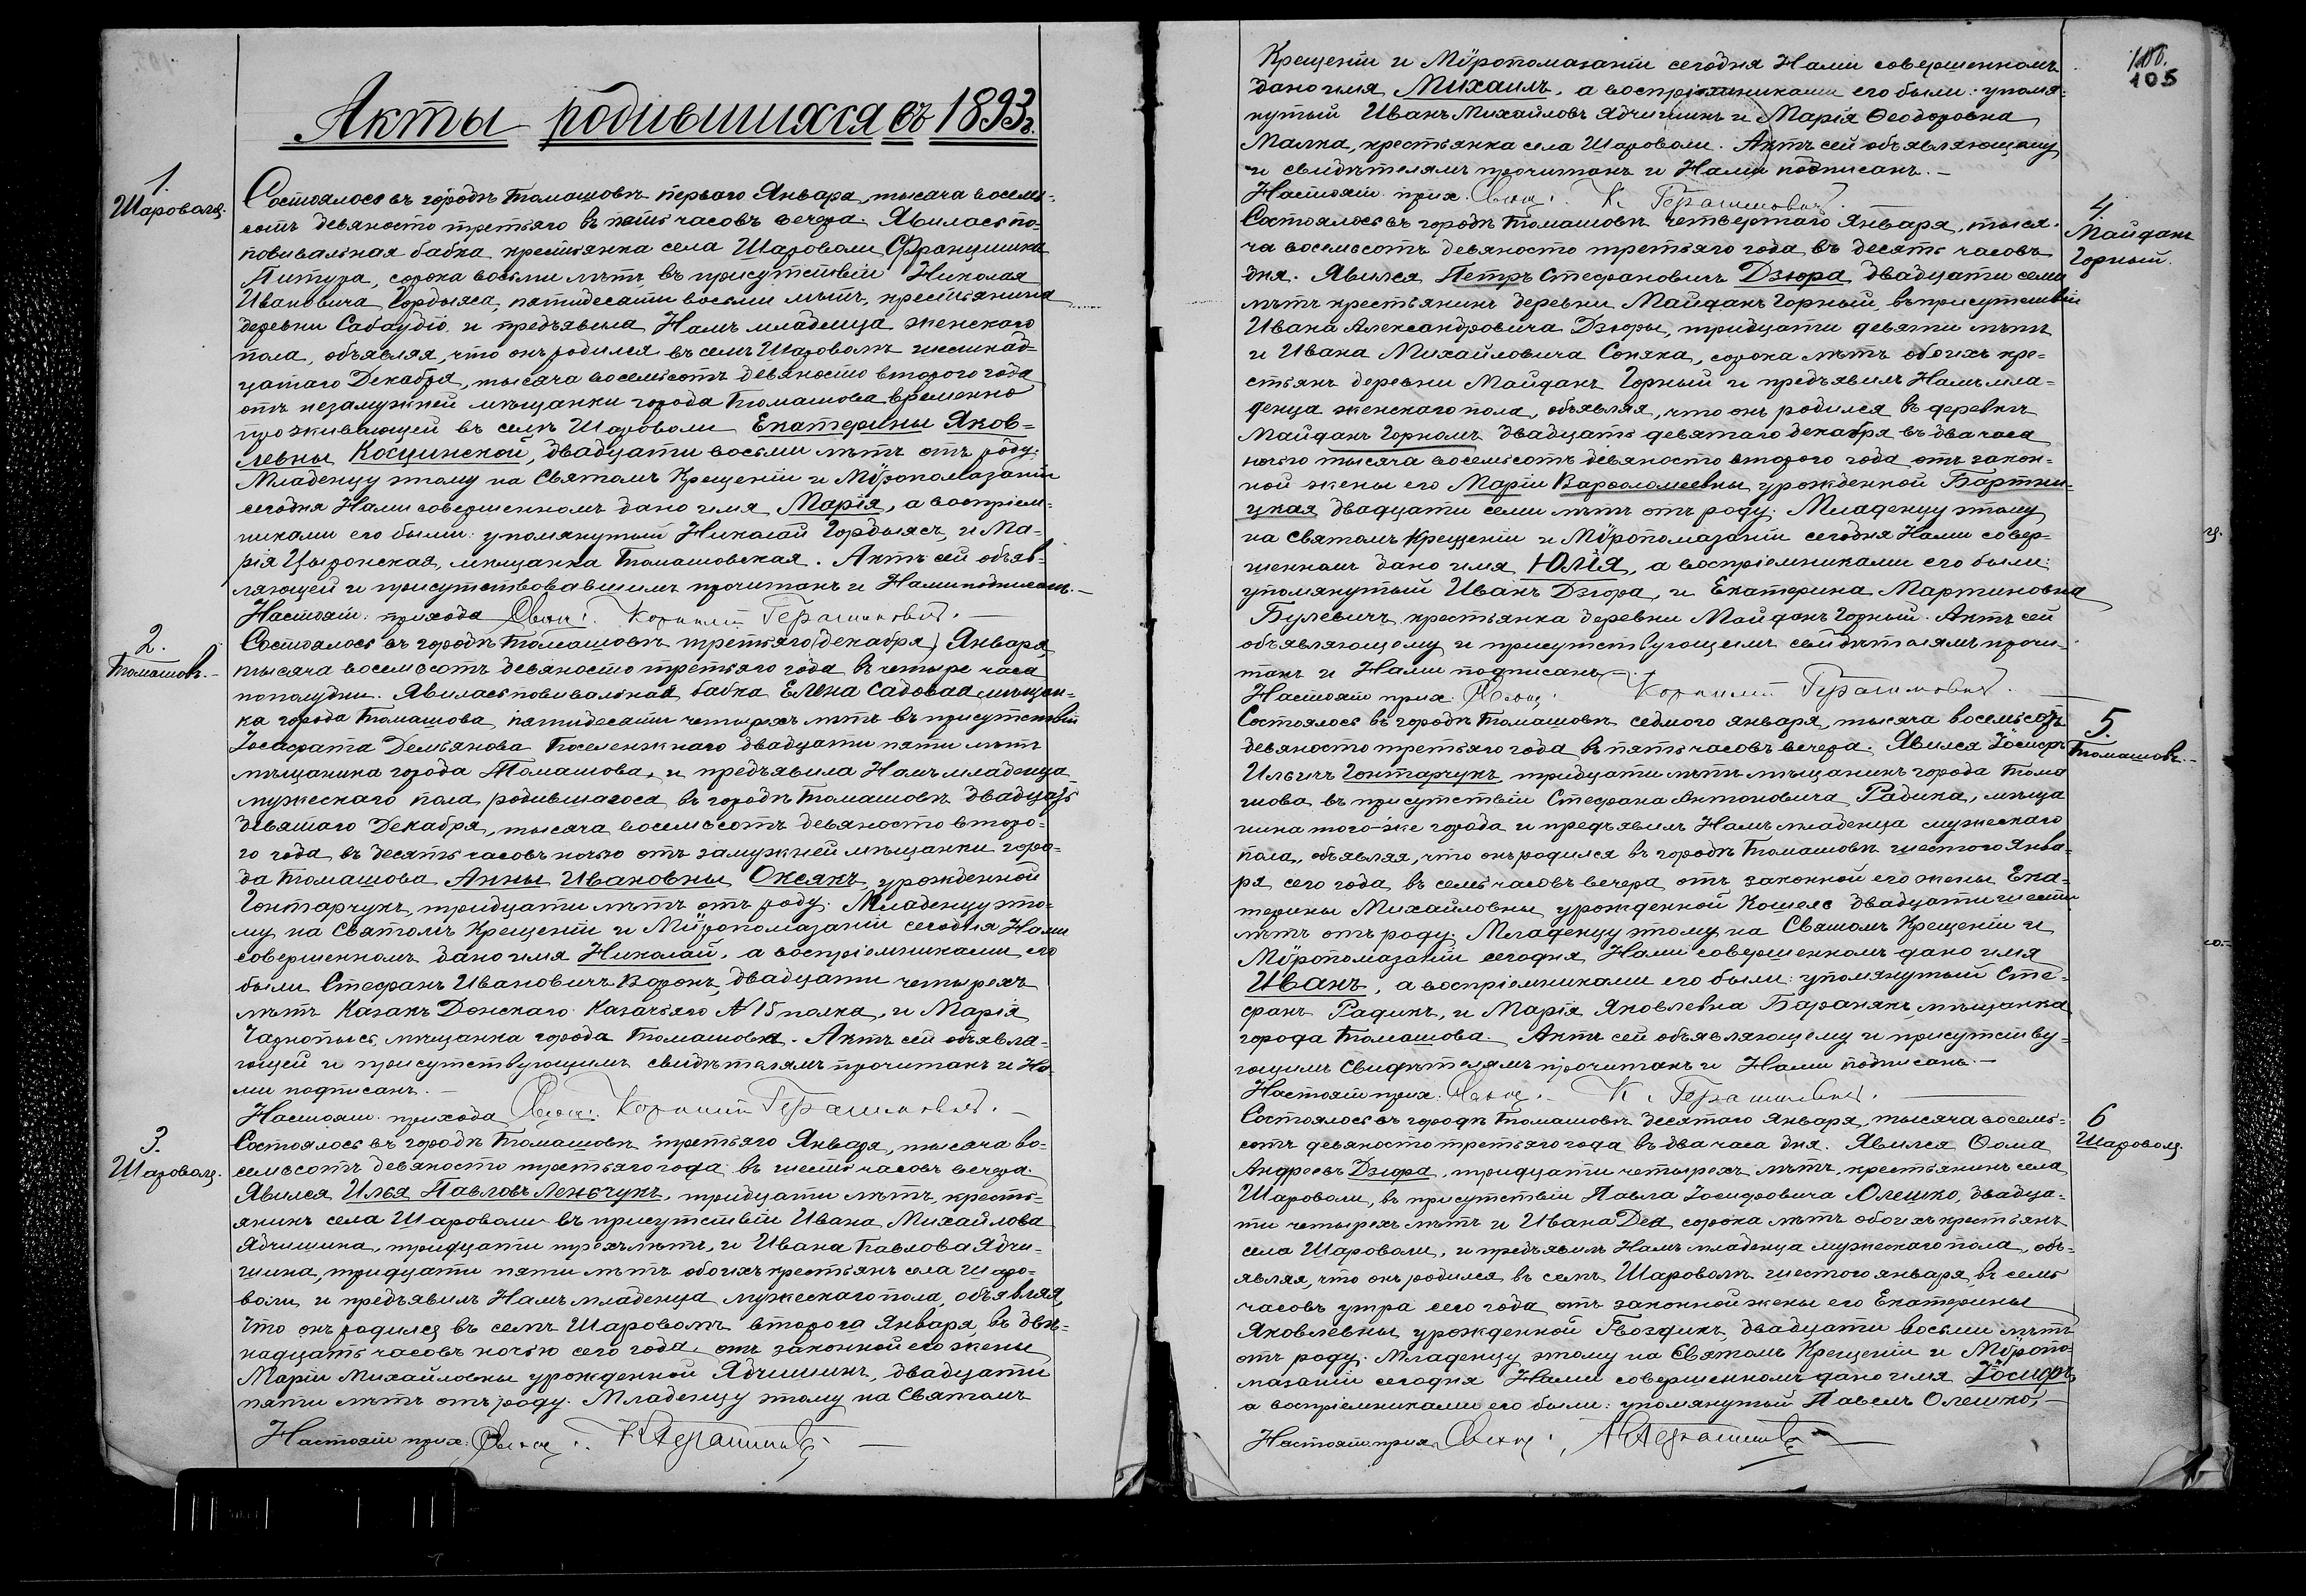 Акты родившихся въ 1893 г.
1.
Шароволя.
Состоялось въ городѣ Томашовѣ перваго Января, тысяча восемь-
сотъ девяносто третьяго въ пять часовъ вечера. Явилась по-
повивальная бабка крестьянка села Шароволи Францишка
Питура, сорока восьми лѣтъ, въ присутствіи Николая
Ивановича Гордыяса, пятидесяти восьми лѣтъ, крестьянина
деревни Сабаудіо, и предъявила Намъ младенца женскаго
пола, объявляя, что онъ родился въ селѣ Шароволѣ шестнад-
цатаго Декабря, тысяча восемьсотъ девяносто второго года
отъ незамужней мѣщанки города Томашова временно
проживающей въ селѣ Шароволи Екатерины Яков-
левны Косцинской, двадцати восьми лѣтъ отъ роду.
Младенцу этому на Святомъ Крещеніи и Мѵропомазаніи
сегодня Нами совершенномъ дано имя Марія, а воспріем-
никами его были: упомянутый Николай Гордыясъ, и Ма-
рія Цыронская, мѣщанка Томашовская. Актъ сей объяв-
ляющей и присутствовавшимъ прочитанъ и Нами подписанъ.
Настоят: прихода Свящ: Корнилій Герасимовичъ.
2.
Томашовъ.
Состоялось въ городѣ Томашовѣ третьяго (декабря) Января
тысяча восемьсотъ девяносто третьяго года въ четыре часа
пополудни. Явилась повивальная бабка Елена Садовая, мѣщан-
ка города Томашова, пятидесяти четырехъ лѣтъ въ присутствіи
Іосафата Демьянова Поселенжнаго двадцати пяти лѣтъ
мѣщанина города Томашова, и предъявила Намъ младенца
мужескаго пола родившагося въ городѣ Томашовѣ двадцать
девятаго Декабря, тысяча восемьсотъ девяносто второ-
го года въ десять часовъ ночью отъ замужней мѣщанки горо-
да Томашова Анны Ивановны Оксякъ, урожденной
Гонтарчукъ, тридцати лѣтъ отъ роду. Младенцу это-
му на Святомъ Крещеніи и Мѵропомазаніи сегодня Нами
совершенномъ дано имя Николай, а воспріемниками его
были Стефанъ Ивановичъ Воронъ, двадцати четырехъ
лѣтъ Казакъ Донскаго Казачьяго № 15 полка, и Марія
Чарнопысь, мѣщанка города Томашова. Актъ сей объявля-
ющей и присутствующимъ свидѣтелямъ прочитанъ и На-
ми подписанъ.
Настоят. прихода Свящ: Корнилій Герасимовичъ.
3.
Шароволя.
Состоялось въ городѣ Томашовѣ третьяго Января, тысяча во-
семьсотъ девяносто третьяго года въ шесть часовъ вечера.
Явился Илья Павловъ Леньчукъ, тридцати лѣтъ, кресть-
янинъ села Шароволи въ присутствіи Ивана Михайлова
Ядчишина, тридцати трехъ лѣтъ, и Ивана Павлова Ядчи-
шина, тридцати пяти лѣтъ обоихъ крестьянъ села Шаро-
воли и предъявилъ Намъ младенца мужескаго пола, объявляя,
что онъ родился въ селѣ Шароволѣ второго Января, въ две-
надцать часовъ ночью сего года, отъ законной его жены
Маріи Михайловны урожденной Ядчишинъ, двадцати
пяти лѣтъ отъ роду. Младенцу этому на Святомъ
Настоят прих: Свящ: К Герасимовичъ
105
Крещеніи и Мѵропомазаніи сегодня Нами совершенномъ
дано имя Михаилъ, а воспріемниками его были: упомя-
нутый Иванъ Михайловъ Ядчишинъ и Марія Ѳеодоровна
Малка, крестьянка села Шароволи. Актъ сей объявляющему
и свидѣтелямъ прочитанъ и Нами подписанъ.
Настоят. прих. Свящ: К. Герасимовичъ.
4.
Майданъ
Горный.
Состоялось въ городѣ Томашовѣ четвертаго Января, тыся-
ча восемьсотъ девяносто третьяго года въ десять часовъ
дня. Явился Петръ Стефановичъ Дзюра двадцати семи
лѣтъ крестьянинъ деревни Майданъ Горный, въ присутствіи
Ивана Александровича Дзюры, тридцати девяти лѣтъ
и Ивана Михайловича Соняка, сорока лѣтъ обоихъ кре-
стьянъ деревни Майданъ Горный и предъявилъ Намъ мла-
денца женскаго пола, объявляя, что онъ родился въ деревнѣ
Майданъ Горномъ двадцать девятаго декабря въ два часа
ночью тысяча восемьсотъ девяносто второго года отъ закон-
ной жены его Маріи Варфоломеевны урожденной Бартни-
цкая двадцати семи лѣтъ отъ роду. Младенцу этому
на Святомъ Крещеніи и Мѵропомазаніи сегодня Нами совер-
шенномъ дано имя Юлія, а воспріемниками его были:
упомянутый Иванъ Дзюра, и Екатерина Мартиновна
Булевичъ, крестьянка деревни Майданъ Горный. Актъ сей
объявляющему и присутствующимъ свидѣтелямъ прочи-
танъ и Нами подписанъ.
Настоят прих. Свящ: Корнилій Герасимовичъ.
5.
Томашовъ.
Состоялось въ городѣ Томашовѣ седмого января, тысяча восемьсотъ
девяносто третьяго года въ пять часовъ вечера. Явился Іосифъ
Ильичъ Гонтарчукъ, тридцати лѣтъ мѣщанинъ города Тома
шова, въ присутствіи Стефана Антоновича Радика, мѣща
нина того-же города и предъявилъ Намъ младенца мужескаго
пола, объявляя, что онъ родился въ городѣ Томашовѣ шестого Янва-
ря сего года въ семь часовъ вечера отъ законной его жены Ека-
терины Михайловны урожденной Кошель двадцати шести
лѣтъ отъ роду. Младенцу этому на Святомъ Крещеніи и
Мѵропомазаніи сегодня Нами совершенномъ дано имя
Иванъ, а воспріемниками его были: упомянутый Сте-
фанъ Радикъ, и Марія Яковлевна Баранякъ, мѣщанка
города Томашова. Актъ сей объявляющему и присутству-
ющимъ Свидѣтелямъ прочитанъ и Нами подписанъ.
Настоят прих. Свящ. К. Герасимовичъ.
6
Шароволя.
Состоялось въ городѣ Томашовѣ десятаго Января, тысяча восемь-
сотъ девяносто третьяго года въ два часа дня. Явился Ѳома
Андреевъ Дзюра, тридцати четырехъ лѣтъ, крестьянинъ села
Шароволи, въ присутствіи Павла Іосифовича Олешко, двадца-
ти четырехъ лѣтъ и Ивана Деа сорока лѣтъ обоихъ крестьянъ
села Шароволи, и предъявилъ Намъ младенца мужескаго пола, объ-
являя, что онъ родился въ селѣ Шароволѣ шестого января, въ семь
часовъ утра сего года отъ законной жены его Екатерины
Яковлевны урожденной Гвоздикъ, двадцати восьми лѣтъ
отъ роду. Младенцу этому на Святомъ Крещеніи и Мѵропо-
мазаніи сегодня Нами совершенномъ дано имя Іосифъ,
а воспріемниками его были: упомянутый Павелъ Олешко,
Настоят прих. Свящ: К Герасимовичъ